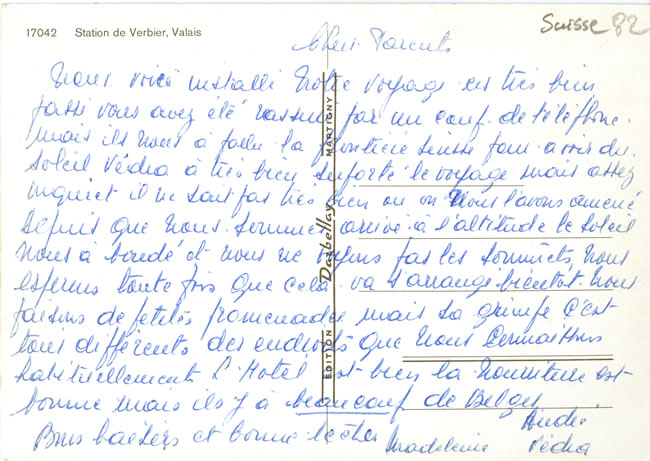 17042 Station de Verbier, Valais
Suisse 82
Chers Parents
Nous voici installé Notre voyage ces très bien
passé vous avez été rassuré par un coup de téléphone.
mais ils nous à fallu la frontière suisse pour avoir du
soleil Védra à très bien suporté le voyage mais assez
inquiet il ne sait pas très bien ou on Nous l'avons amené
Depuis que Nous sommes arrivé à l'altitude le soleil
Nous à boudé et nous ne voyons pas les sommets, Nous
esperons toute fois que cela va s'arrangé bientôt. Nous
faisons de petites promenades mais sa grimpe c'est
tous différents des endroits que Nous Connaissons
habituellements L'Hotel est bien la Nourriture est
bonne mais ils y à beaucoup de Belges
Bons baisers et bonne
André
Madeleine Védra
EDITION Darbellay MARTIGNY